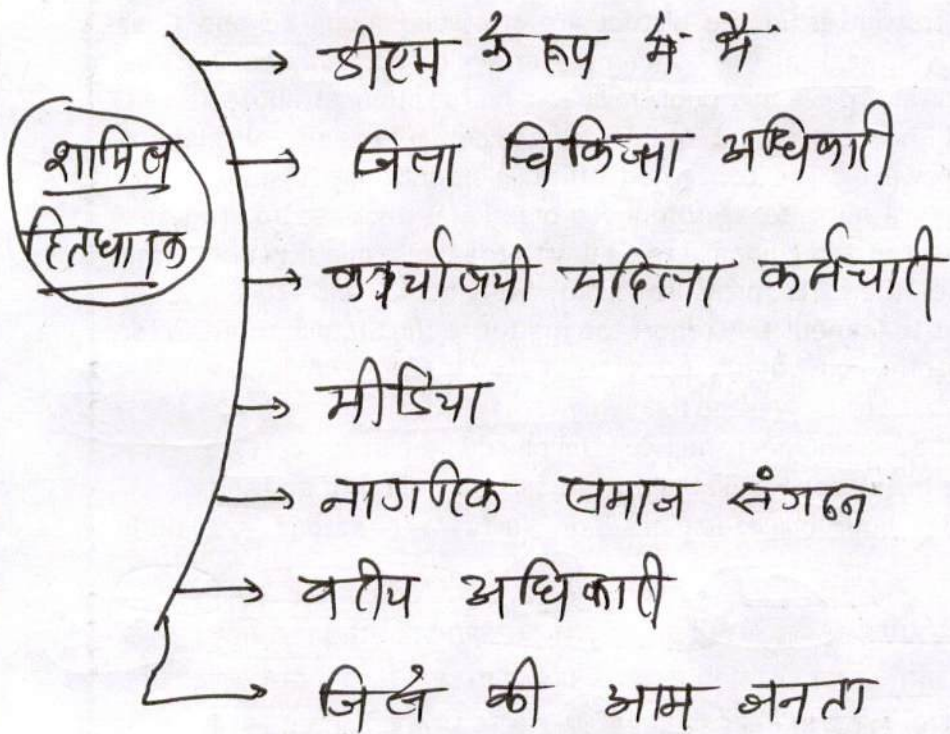 शामिल
हितधारक
डीएम के रूप में मैं
जिला चिकित्सा अधिकारी
महिला कर्मचारी
मीडिया
नागरिक समाज संगठन
वरीय अधिकारी
जिले की आम जनता